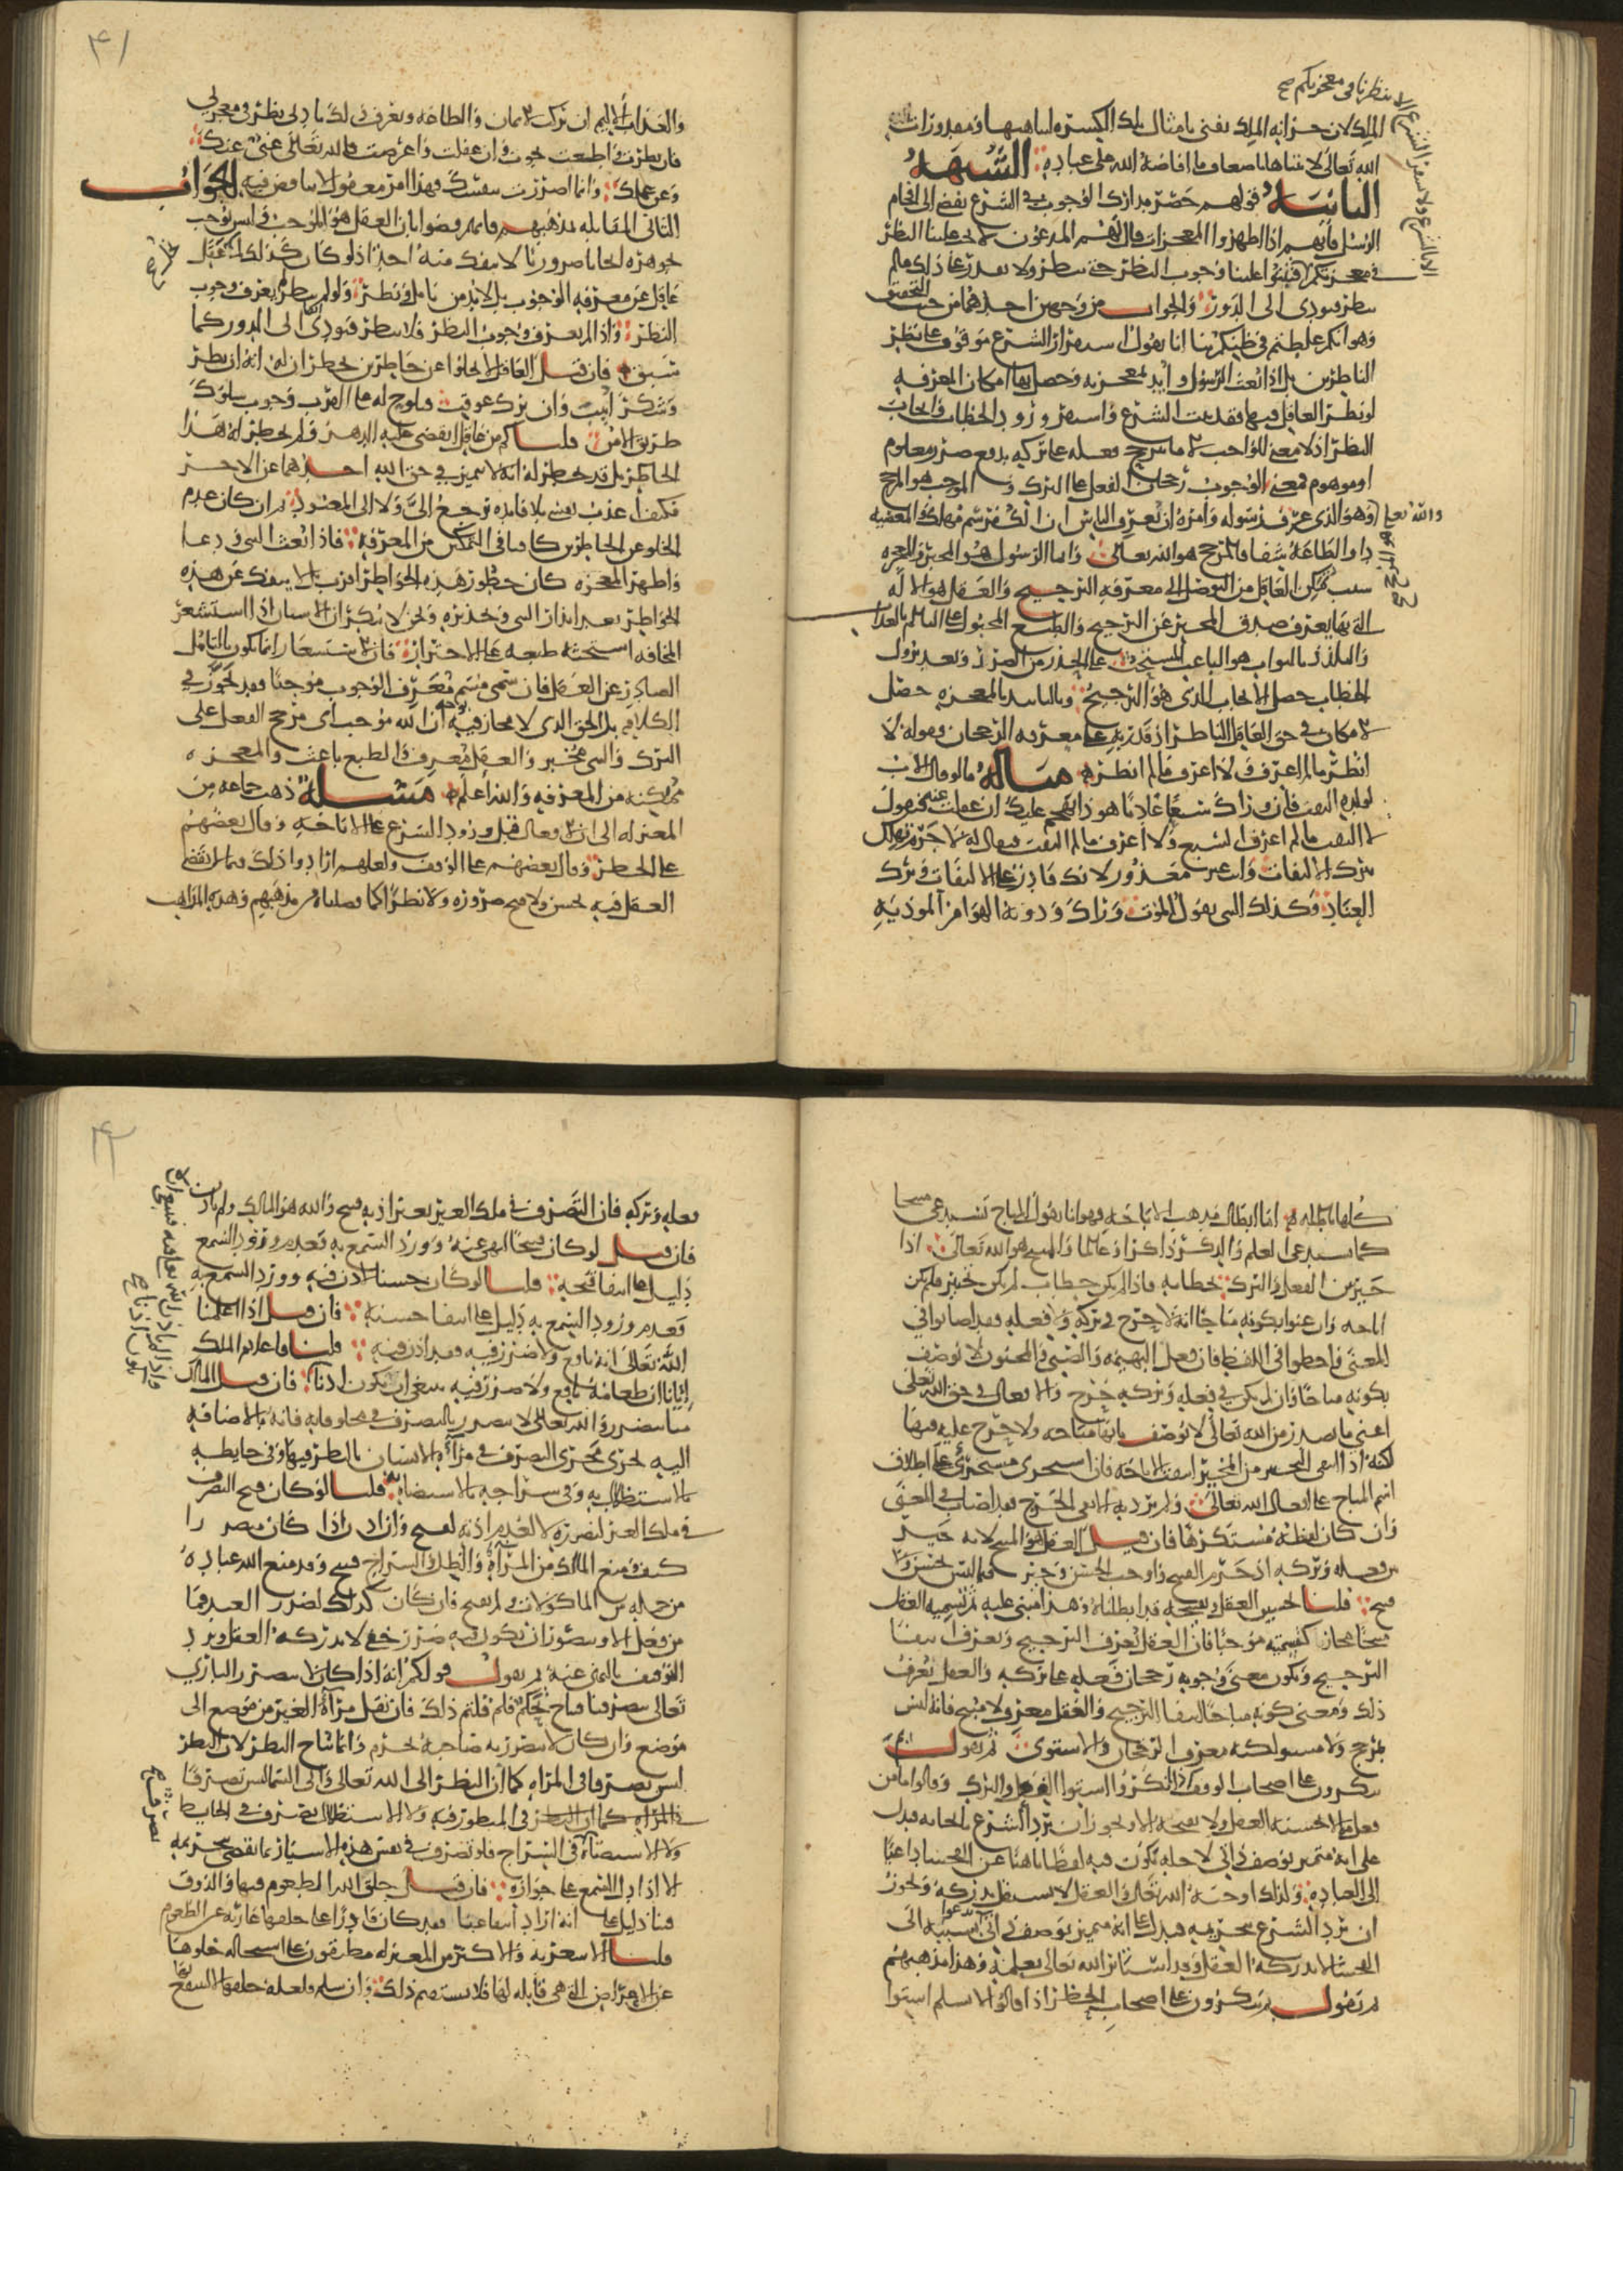 الا بنظرنا في معجزتكم صح
الملك لان خزانه الملك تفنى بامثال تلك الكسره لتناهيها ومقدورات
الله تعالى لا تتناهى باضعاف ما افاضه الله على عباده الشبهه
الثانيه قولهم حصر مدارك الوجوب في الشرع يفضي الى افحام
الرسل فانهم اذا اظهروا المعجزات قال لهم المدعوون لا يجب علينا النظر
في معجزتكم فثبتوا علينا وجوب النظر حتى ننظر ولا نقدر على ذلك ما لم
ننظر فيودي الى الدور والجواب من وجهين احدهما من حيث التحقيق
وهو انكم غلطتم في ظنكم بنا انا نقول استقرار الشرع موقوف على نظر
الناظرين بل اذا بعث الرسول وايد بمعجزته وحصل بها امكان المعرفه
لو نظر العاقل فيها فقد ثبت الشرع واستقر ورود الخطاب بايجاب
النظر اذ لا معنى للواجب الا ما ترجح فعله على تركه بدفع ضرر معلوم
او موهوم فمعنى الوجوب رجحان الفعل على الترك والموجب هو المرجح
والله تعالى هو المرجح صح
وهو الذي عرف رسوله وامره ان يعرف الناس ان الكفر سم مهلك والمعصيه
دا والطاعه شفا فالمرجح هو الله تعالى واما الرسول هو المخبر والمعجزه
سبب يمكن العاقل من التوصل الى معرفه الترجيح والعقل هو الاله
التي بها يعرف صدق المخبر عن الترجيح والطبع المجبول على التالم بالعذاب
والتلذذ بالثواب هو الباعث المستحث على الحذر من الضرر وبعد نزول
الخطاب حصل الايجاب الذي هو الترجيح وبالتاييد بالمعجزه حصل
الامكان في حق العاقل الناظر اذ قدر به على معرفه الرجحان وقوله لا
انظر ما لم اعرف ولا اعرف ما لم انظر مثاله ما لو قال الاب
لولده التفت فان وراك سبعا عاديا هو ذا يهجم عليك ان غفلت عنه فيقول
لا التفت ما لم اعرف السبع ولا اعرف ما لم التفت فيقال له لا جرم تهلك
بترك الالتفات وانت غير معذور لانك قادر على الالتفات وترك
العناد وكذلك النبي يقول الموت وراك ودونه الهوام الموذيه
٤١
والعذاب الاليم ان تركت الايمان والطاعه وتعرف ذلك بادنى نظر في معجزتي
فان نظرت واطعت نجوت وان غفلت واعرضت فالله تعالى غني عنك
وعن عملك وانما اضررت بنفسك فهذا امر معقول لا تناقض فيه الجواب
الثاني المقابله بمذهبهم فانهم قضوا بان العقل هو الموجب وليس يوجب
بجوهره ايجابا ضروريا لا ينفك منه احد اذ لو كان كذلك لم يخل عقل
عاقل عن معرفه الوجوب بل لا بد من تامل ونظر ولو لم ينظر لم يعرف وجوب
النظر واذا لم يعرف وجوب النظر فلا ينظر فيودي الى الدور كما
سبق فان قيل العاقل لا يخلوا عن خاطرين يخطران له انه ان نظر
وشكر اثيب وان ترك عوقب فيلوح له على القرب وجوب سلوك
طريق الامن قلنا كم من عاقل انقضى عليه الدهر ولم يخطر له هذا
الخاطر بل قد يخطر له انه لا يتميز في حق الله احدهما عن الاخر
فكيف اعذب نفسي بلا فايده ترجع الي ولا الى المعبود ثم ان كان عدم
الخلو عن الخاطرين كافيا في التمكن من المعرفه فاذا بعث النبي ودعا
واظهر المعجزه كان حضور هذه الخواطر اقرب بل لا ينفك عن هذه
الخواطر بعد انذار النبي وتحذيره ونحن لا ننكر ان الانسان اذا استشعر
المخافه استحثه طبعه على الاحتراز فان الاستشعار انما يكون بالتامل
الصادر عن العقل فان سمى مسم معرف الوجوب موجبا فقد تجوز في
الكلام بل الحق الذي لا مجاز فيه ان الله موجب اي مرجح الفعل على
الترك والنبي مخبر والعقل معرف والطبع باعث والمعجزه
ممكنه من المعرفه والله اعلم مسئله ذهب جماعه من
المعتزله الى ان الافعال قبل ورود الشرع على الاباحه وقال بعضهم
على الحظر وقال بعضهم على الوقف ولعلهم ارادوا ذلك فيما لا يقضي
العقل فيه بحسن ولا قبح ضروره ولا نظرا كما فصلناه من مذهبهم وهذه المذاهب
كلها باطله اما ابطال مذهب الاباحه فهو انا نقول المباح يستدعي مبيحا
كما يستدعي العلم والذكر ذاكرا وعالما والمبيح هو الله تعالى اذا
خير بين الفعل والترك بخطابه فاذا لم يكن خطاب لم يكن تخيير فلم يكن
اباحه وان عنوا بكونه مباحا انه لا حرج في تركه ولا فعله فقد اصابوا في
المعنى واخطوا في اللفظ فان فعل البهيمه والصبي والمجنون لا يوصف
بكونه مباحا وان لم يكن في فعله وتركه حرج والافعال في حق الله تعالى
اعني ما يصدر من الله تعالى لا توصف بانها مباحه ولا حرج عليه فيها
لكنه اذا انتفى التخيير من المخير انتفت الاباحه فان استجرى مستجرئ على اطلاق
اسم المباح على افعال الله تعالى ولم يرد به الا نفي الحرج فقد اصاب في المعنى
وان كان لفظه مستكرها فان قيل العقل هو المبيح لانه خير
بين فعله وتركه اذ حرم القبيح واوجب الحسن وخير فيما ليس بحسن ولا
قبيح قلنا تحسين العقل وتقبيحه قد ابطلناه وهذا مبني عليه ثم تسميه العقل
مبيحا مجاز كتسميته موجبا فان العقل يعرف الترجيح ويعرف انتفا
الترجيح ويكون معنى وجوبه رجحان فعله على تركه والعقل يعرف
ذلك ومعنى كونه مباحا انتفا الترجيح والعقل معرف لا مبيح فانه ليس
بمرجح ولا مسو لكنه معرف الرجحان والاستوى ثم نقول
تنكرون على اصحاب الوقف اذا انكروا استوا الفعل والترك وقالوا ما من
فعل مما لا يحسنه العقل ولا يقبحه الا ويجوز ان يرد الشرع بايجابه فيدل
على انه متميز بوصف ذاتي لاجله يكون فيه لطفا ناهيا عن الفحشا داعيا
الى العباده ولذلك اوجبه الله تعالى والعقل لا يستقل بدركه ويجوز
ان يرد الشرع بتحريمه فيدل على انه متميز بوصف ذاتي يدعوا بسببه الى
الفحشا لا يدركه العقل وقد استاثر الله تعالى بعلمه وهذا مذهبهم
ثم نقول بم تنكرون على اصحاب الحظر اذا قالوا لا نسلم استوا
٤٢
فعله وتركه فان التصرف في ملك الغير بغير اذنه قبيح والله هو المالك ولم ياذن
فان قيل لو كان قبيحا لنهى عنه وورد السمع به فعدم ورود السمع
دليل على انتفا قبحه قلنا لو كان حسنا لاذن فيه وورد السمع به
فعدم ورود السمع به دليل على انتفا حسنه فان قيل اذا اعلمنا
الله تعالى انه نافع ولا ضرر فيه فقد اذن فيه قلنا فاعلام المالك
ايانا ان طعامه نافع ولا ضرر فيه ينبغي ان يكون اذنا فان قيل المالك
منا يتضرر والله تعالى لا يتضرر بالتصرف في مخلوقاته فانه بالاضافه
اليه يجري مجرى التصرف في مرآه الانسان بالنظر فيها وفي حايطه
بالاستظلال به وفي سراجه بالاستضاه قلنا لو كان قبح التصرف
في ملك الغير لتضرره لا لعدم اذنه لقبح وان اذن اذا كان متضررا
كيف ومنع المالك من المرآه والظل والسراج قبيح وقد منع الله عباده
من جمله من الماكولات ولم يقبح فان كان كذلك لضرر العبد فما
من فعل الا ويتصور ان يكون فيه ضرر خفي لا يدركه العقل ويرد
التوقيف بالنهي عنه ثم نقول قولكم انه اذا كان لا يتضرر الباري
تعالى بتصرفنا فيباح تحكم فلم قلتم ذلك فان نقل مرآه الغير من موضع الى
موضع وان كان لا يتضرر به صاحبه يحرم وانما يباح النظر لان النظر
ليس بتصرف في المراه كما ان النظر الى الله تعالى والى السما ليس تصرفا
في المراه كما ان النظر في المنظور فيه ولا الاستظلال تصرف في الحايط
تصرف صح
ولا الاستضاه في السراج فلو تصرف في نفس هذه الاشيا ربما نقضي بتحريمه
الا اذا دل السمع على جوازه فان قيل خلق الله المطعوم فيها والذوق
فينا دليل على انه اراد انتفاعنا فقد كان قادرا على خلقها عاريه عن الطعوم
قلنا الاشعريه والاكثر من المعتزله مطبقون على استحاله خلوها
عن الاعراض التي هي قابله لها فلا يستقيم ذلك وان سلم فلعله خلقها لا لينتفع بها